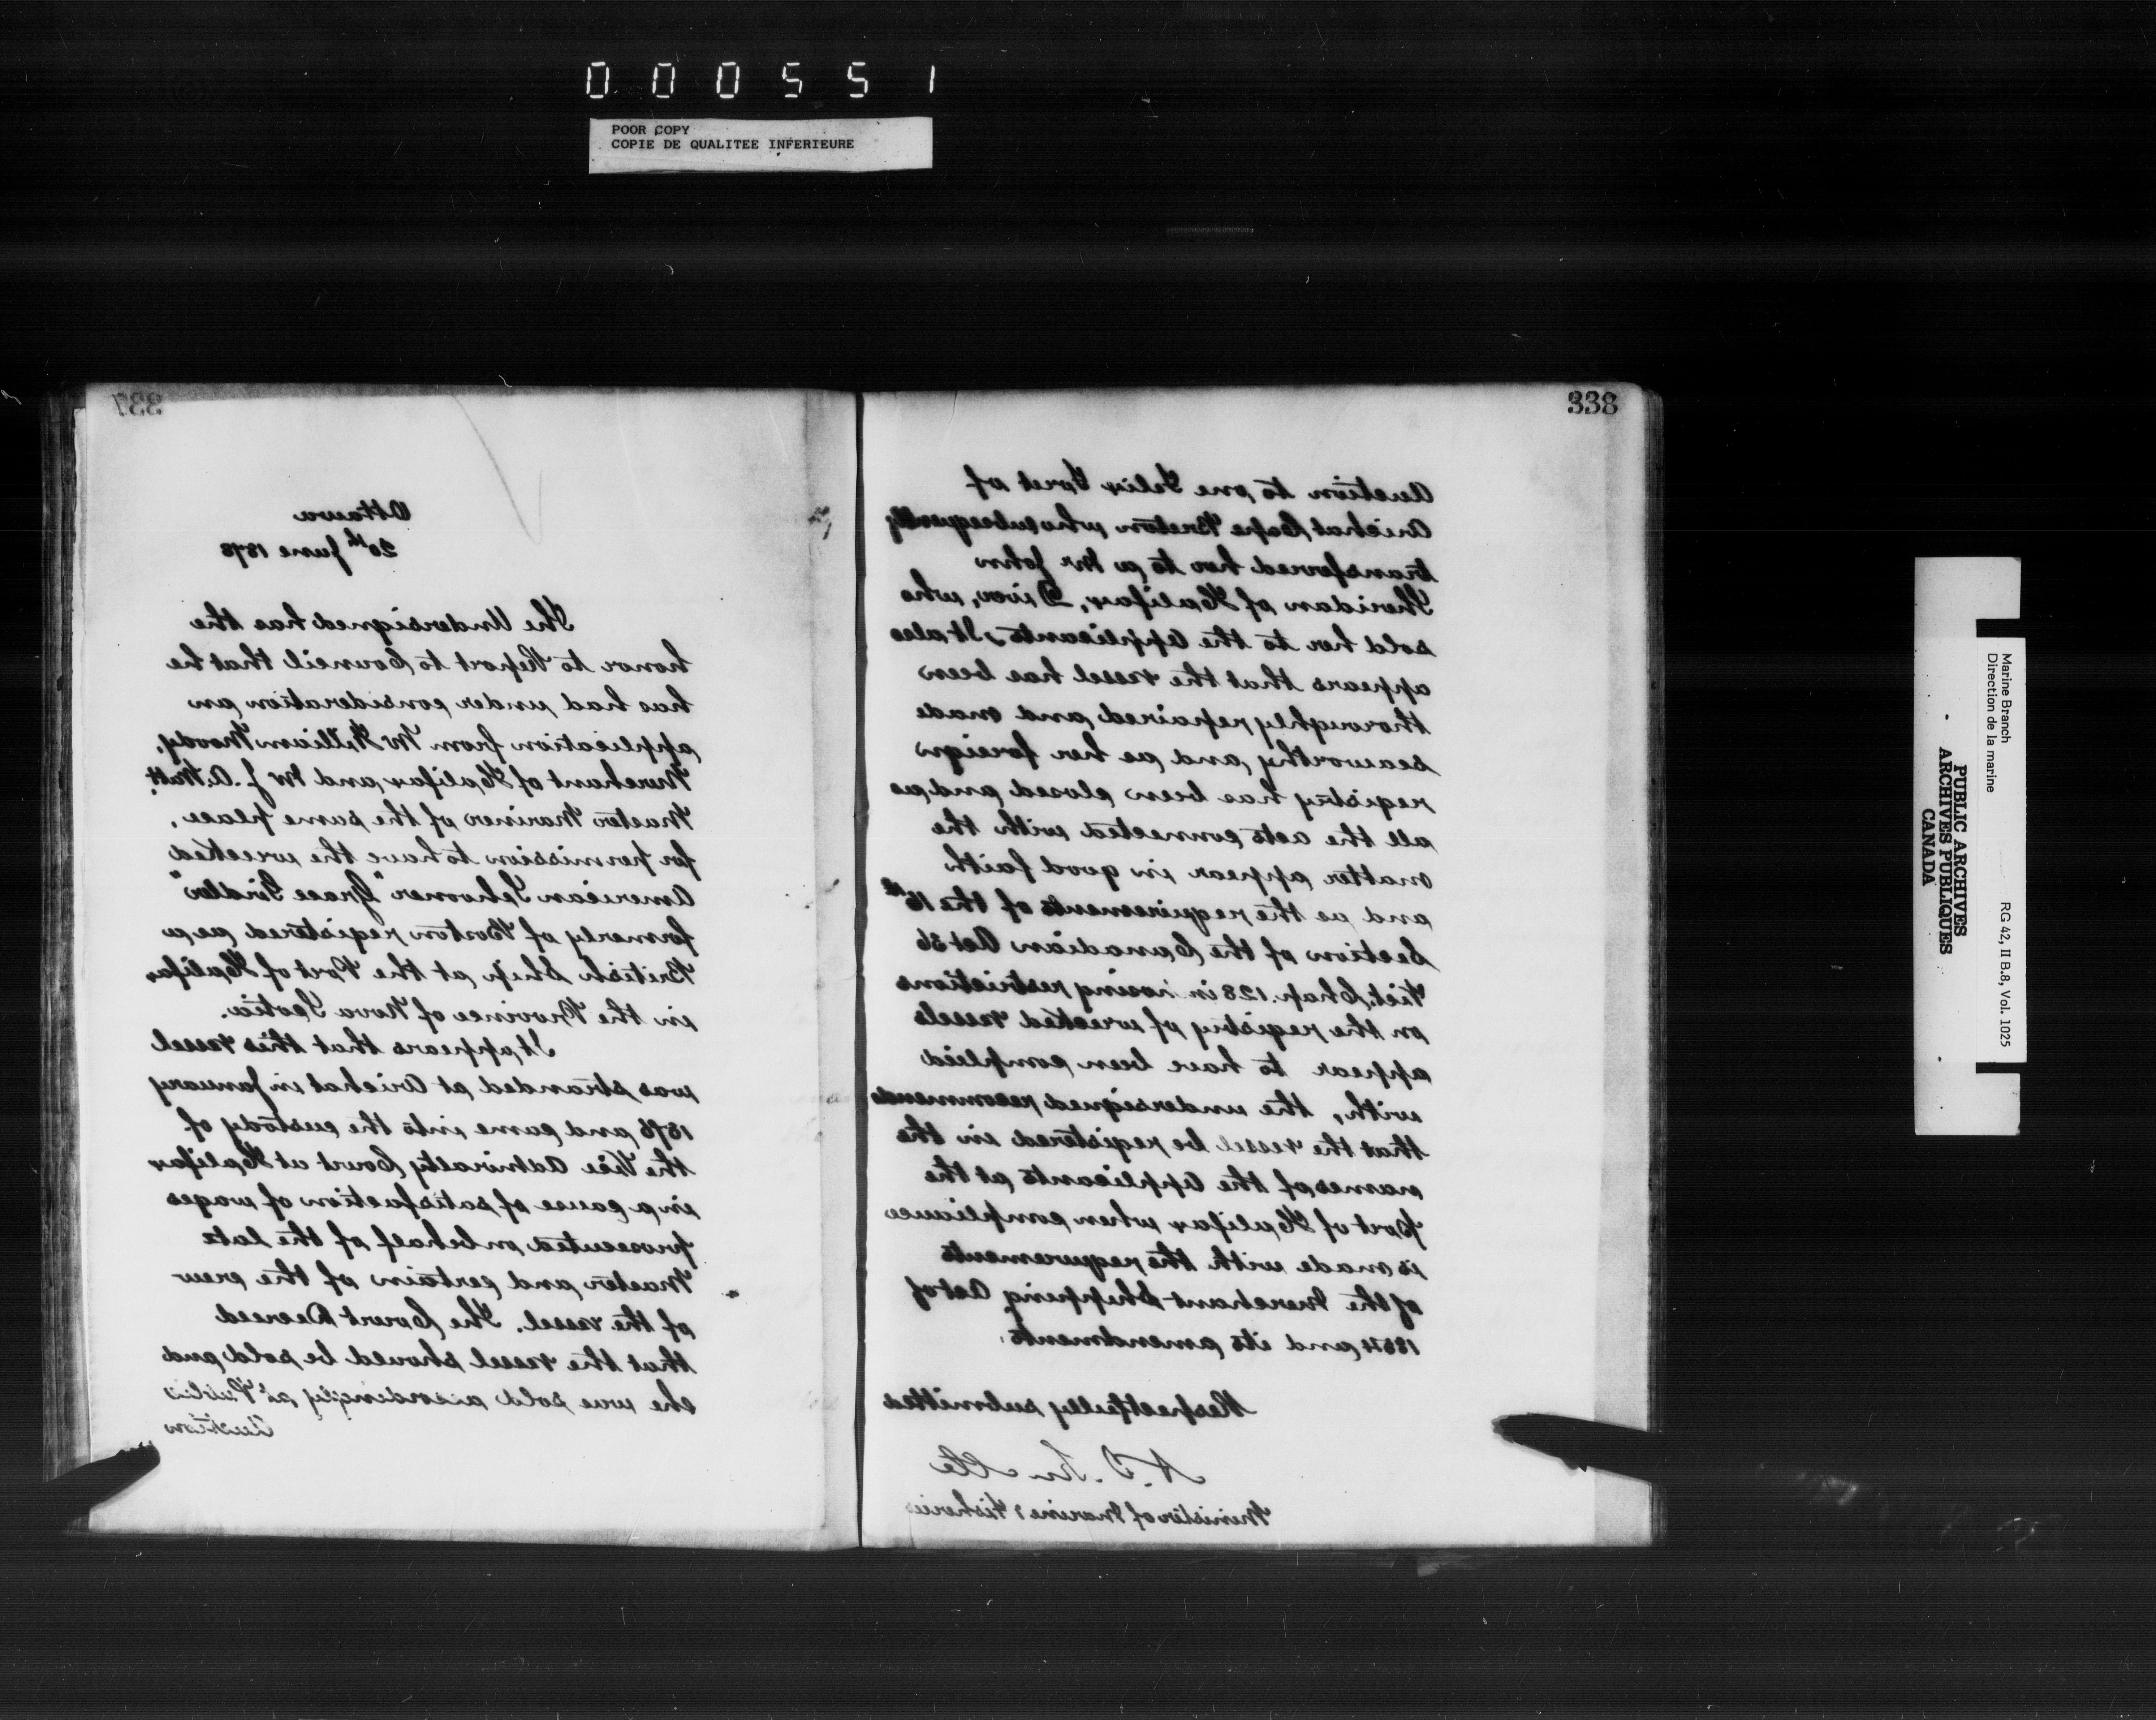 000551
POOR COPY
COPIE DE QUALITEE INFERIEURE
337
Ottawa
20th June 1878
The Undersigned has the
honor to Report to Council that he
has had under consideration an
application from Mr William Moody,
Merchant of Halifax and Mr J. A. Watt
Master Mariner of the same place,
for permission to have the wrecked
American Schooner "Grace Girdler"
formerly of Boston registered as a
British Ship at the Port of Halifax
in the Province of Nova Scotia.
It appears that this vessel
was stranded at Arichat in January
1878 and came into the custody of
the Vice Admiralty Court at Halifax
in a cause of satisfaction of wages
prosecuted on behalf of the late
Master and certain of the crew
of the vessel. The Court Decreed
that the vessel should be sold and
she was sold accordingly at Public
Auction
338
Auction to one Felix of
Arichat Cape Breton who subsequently
transferred her to a Mr John
Sheridan of Halifax, Diver, who
sold her to the Applicants, It also
appears that the vessel has been
thoroughly repaired and made
seaworthy and as her foreign
registry has been closed and as
all the acts connected with the
matter appear in good faith
and as the requirements of the 16th
Section of the Canadian Act 36
Vict. Chap. 128 in restrictions
on the registry of wrecked vessels
appear to have been complied
with, the undersigned recommends
that the vessel be registered in the
names of the Applicants at the
port of Halifax when compliance
is made with the requirements
of the Merchant Shipping Act of
1854 and its amendments.
Respectfully submitted
Minister of Marine & Fisheries
Marine Branch
Direction de la marine
RG 42, II B.8, Vol. 1025
PUBLIC ARCHIVES
ARCHIVES PUBLIQUES
CANADA